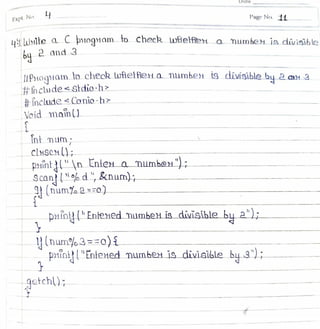 Date
Expt. No. 4
Page No. 11
4} Write a C program to check whether a number is divisible
by 2 and 3
//Program to check whether a number is divisible by 2 or 3
#include<stdio.h>
#include<conio.h>
Void main()
{
int num;
clrscr();
printf("\n Enter a number");
scanf("%d", &num);
If (num%2==0)
{
printf("Entered number is divisible by 2");
}
If (num%3==0){
printf("Entered number is divisible by 3");
}
getch();
}